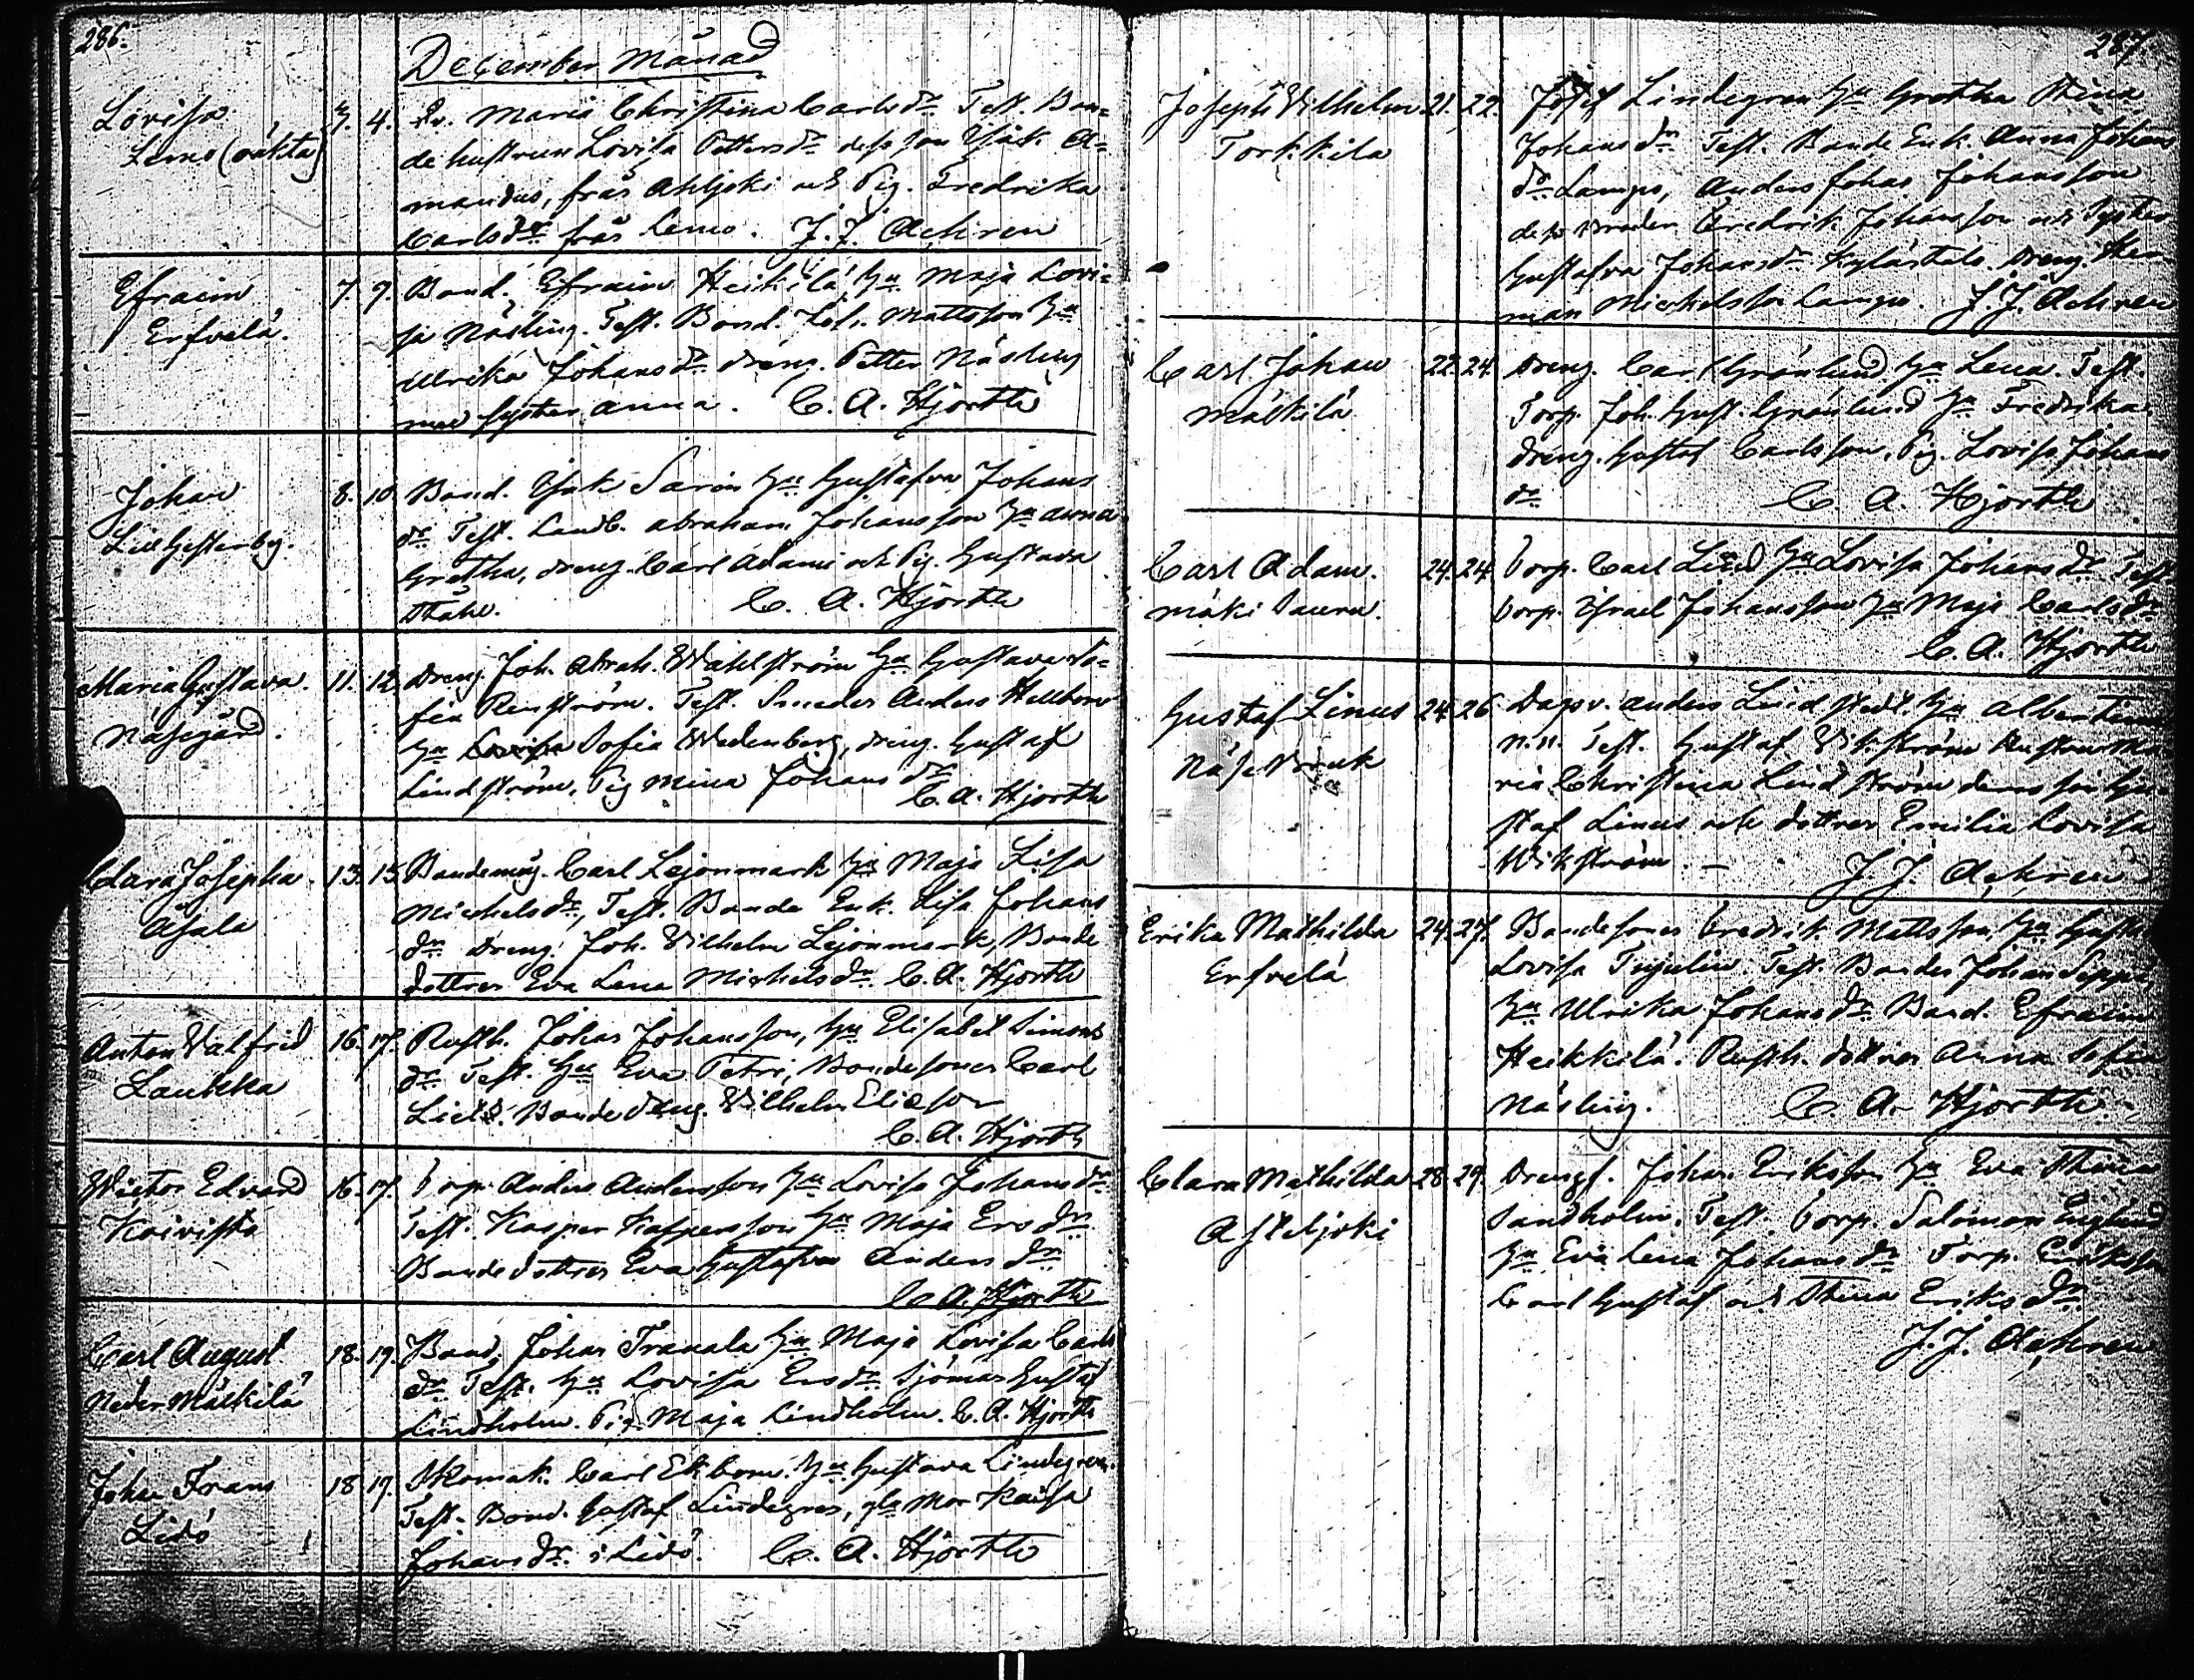 286.
December Månad
Lovisa 3. 4. Qv. Maria Christina Carlsdr. Test. Bon=
Lemo (oäkta) dehustrun Lovisa Pettersdr dess son Isak A=
mandus, från Ahljoki och Pig. Fredrika
Carlsdr från Lemo. J. J. Achrén
Efraim 7. 9. Bond. Efraim Heikilä hu Maja Lovi=
Erfvelä. sa Näsling. Test. Bond. Joh. Mattsson hu
Ulrika Johansdr. dreng. Petter Näsling
med syster Anna. C. A. Hjorth
Johan 8. 10. Bond. Isak Sarin hu Gustafva Johans
Lill Gesterby. dr Test. Landb. Abraham Johansson hu Anna
Gretha, dreng. Carl Adam och Pig. Gustava
Ståhl. C. A. Hjorth
Maria Gustava. 11. 12. Dreng. Joh. Abrah. Wahlström hu Gustava So=
Näsegård. fia Renström. Test. Smeden Anders Hellbom
hu Sofia Wedenberg, dreng. Gustaf
Lindström, Pig Mina Johansdr
C. A. Hjorth
Clara Josepha 13. 15. Bondemåg. Carl Lejonmark hu Maja Lisa
Åsala Michelsdr, Test. Bonde Enk. Lisa Johans
dr. Dreng. Joh. Vilhelm Lejonmark, Bonde
dottren Eva Lena Michelsdr. C. A. Hjorth
Anton Valfrid 16. 17. Rusth. Johan Johansson, hu Elisabet Simons
Laukka dr. Test. hu Eva Petri, Bondesonen Carl
Bonde dreng. Vilhelm Eliasson
C. A. Hjorth
Wictor Edvard 16. 17. Torp. Anders Andersson hu Lovisa Johansdr
Koivisto Test. Kasper Kaspersson hu Maja Ersdr.
Bondedottren Eva Gustafva Andersdr
C. A. Hjorth
Carl August 18. 19. Bond. Johan Tranala hu Maja Lovisa Carls
Neder Mälkilä dr. Test. hu Lovisa Ersdr. Sjöman Gustaf
Lindholm. Pig. Maja Lindholm. C. A. Hjorth
Johan Frans 18. 19. Skomak. Carl Ekbom. hu Gustava Lindegren.
Lidö Test. Bond. Gustaf Lindegren, gla Mor Kaisa
Johansdr. i Lidö. C. A. Hjorth
287.
Joseph Vilhelm 21. 22. Josef Lindegren hu Gretha Stina
Torkkila Johansdr Test. Bonde Enk. Anna Johans
dr Lampo, Anders Johan Johansson
dess broder Fredrik Johansson och Syster
Gustafva Johansdr Kylästalo. Dreng. Her
man Michelsson Lampo. J. J. Achrén
Carl Johan 22. 24. Dreng. Carl Grönlund hu Lena. Test.
Mälkilä Torp. Joh. Gust. Grönlund hu Fredrika
Dreng. Gustaf Carlsson, Pig. Lovisa Johans
dr C. A. Hjorth
Carl Adam. 24. 24. Torp. Carl Lind hu Lovisa Johansdr Test
Mäki Torp. Israel Johansson hu Maja Carlsdr
C. A. Hjorth
Gustaf Linus 24. 26. Dagsv. Anders Lindstedt hu Albertina
Näse Bruk n. n. Test. Gustaf Vikström hustrun Ma
ria Christina Lindström dennes son Gu
staf Linus och dottren Emilia Lovisa
Wikström. – J. J. Achrén
Erika Mathilda 24. 27. Bondesonen Fredrik Mattsson, hu
Erfvelä Lovisa Test. Bonden Johan Seppä
hu Ulrika Johansdr Bond. Efraim
Heikkilä. Rusth. dottren Anna Sofia
Näsling. C. A. Hjorth
Clara Mathilda 28. 29. Drengf. Johan Eriksson hu Eva Stina
Asteljoki Sandholm. Test. Torp. Salomon Englund
hu Eva Lena Johansdr Torp. Eriksson
Carl Gustaf och Stina Eriksdr.
J. J. Achrén